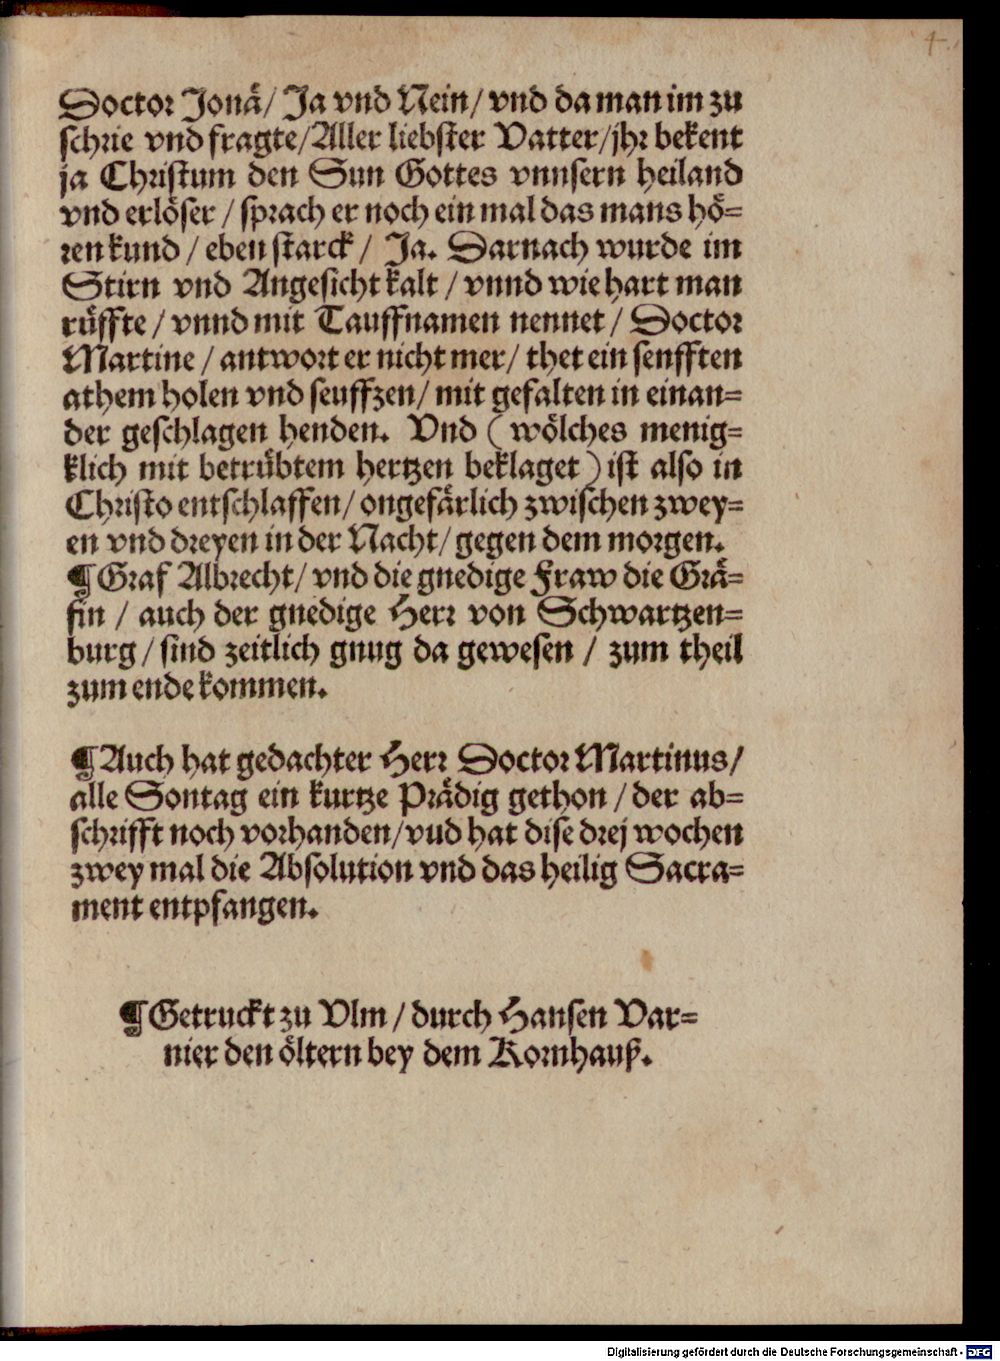 4.
Doctor Jonä/ Ja vnd Nein/ vnd da man im zu
schrie vnd fragte/ Aller liebster Vatter/ jhr bekent
ja Christum den Sun Gottes vnnsern heiland
vnd erlöser / sprach er noch ein mal das mans hö=
ren kund / eben starck / Ja. Darnach wurde im
Stirn vnd Angesicht kalt / vnnd wie hart man
rüffte / vnnd mit Tauffnamen nennet / Doctor
Martine / antwort er nicht mer/ thet ein senfften
athem holen vnd seuffzen/ mit gefalten in einan=
der geschlagen henden. Vnd ( wölches menig=
klich mit betrübtem hertzen beklaget ) ist also in
Christo entschlaffen/ ongefärlich zwischen zwey=
en vnd dreyen in der Nacht/ gegen dem morgen.
¶ Graf Albrecht/ vnd die gnedige Fraw die Grä=
fin / auch der gnedige Herr von Schwartzen=
burg / sind zeitlich gnug da gewesen / zum theil
zum ende kommen.
¶ Auch hat gedachter Herr Doctor Martinus/
alle Sontag ein kurtze Prädig gethon / der ab=
schrifft noch vorhanden/ vud hat dise drej wochen
zwey mal die Absolution vnd das heilig Sacra=
ment entpfangen.
¶ Getruckt zu Vlm / durch Hansen Var=
nier den öltern bey dem Kornhauß.
Digitalisierung gefördert durch die Deutsche Forschungsgemeinschaft - DFG